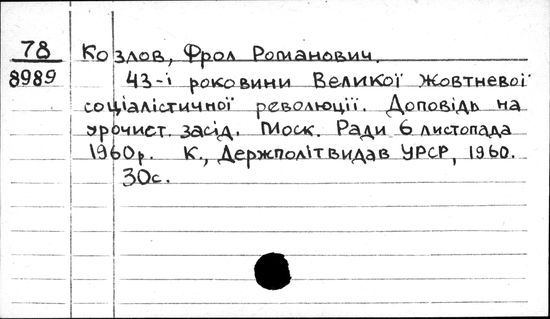 78 Козлов, Фрол Романович.
8989 43-і роковини Великої Жовтневої
соціалістичної революції. Доповідь на
урочист. засід. Моск. Ради 6 листопада
1960р. К., Держполітвидав УРСР, 1960.
30с.